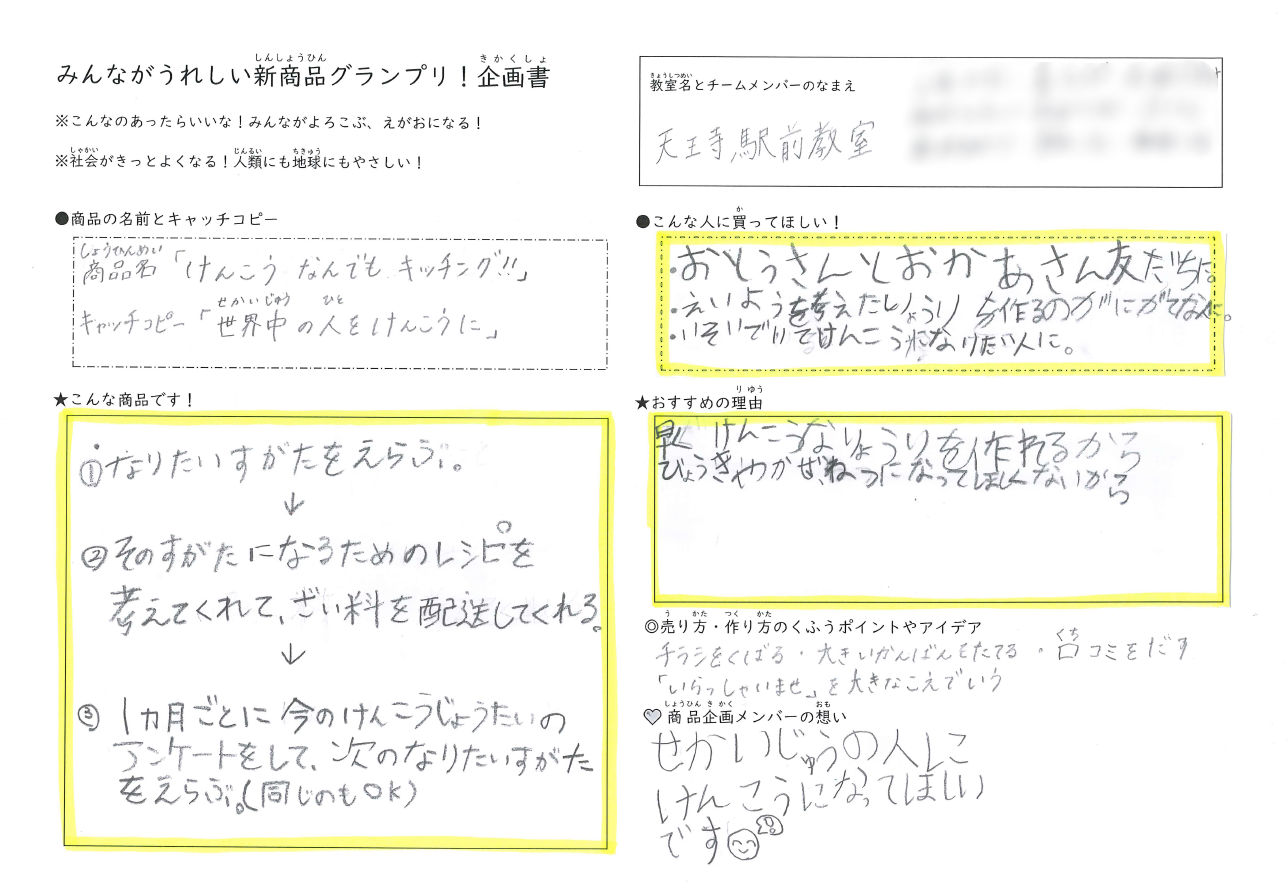 みんながうれしい新商品グランプリ！企画書
しんしょうひん
きかくしょ
※こんなのあったらいいな！みんながよろこぶ、えがおになる！
※社会がきっとよくなる！人類にも地球にもやさしい！
しゃかい
じんるい
ちきゅう
教室名とチームメンバーのなまえ
きょうしつめい
天王寺駅前教室
●商品の名前とキャッチコピー
しょうひんめい
商品名「けんこう なんでも キッチング!!」
せかいじゅう ひと
キャッチコピー「世界中の人をけんこうに」
●こんな人に買ってほしい！
か
・おとうさんとおかあさん友だちに。
・えいようを考えたりょうりを作るのがにがてな人に。
・いそいでいてけんこうになりたい人に。
★こんな商品です！
①なりたいすがたをえらぶ。
↓
②そのすがたになるためのレシピを
考えてくれて、ざい料を配送してくれる。
↓
③1カ月ごとに今のけんこうじょうたいの
アンケートをして、次のなりたいすがた
をえらぶ。(同じのもOK)
★おすすめの理由
りゆう
早く けんこうなりょうりを作れるから
びょうきやかぜ、ねつになってほしくないから
◎売り方・作り方のくふうポイントやアイデア
う かた つく かた
チラシをくばる・大きいかんばんをたてる・口コミをだす
くち
「いらっしゃいませ」を大きなこえでいう
♡商品企画メンバーの想い
しょうひんきかく
おも
せかいじゅうの人に
けんこうになってほしい
です